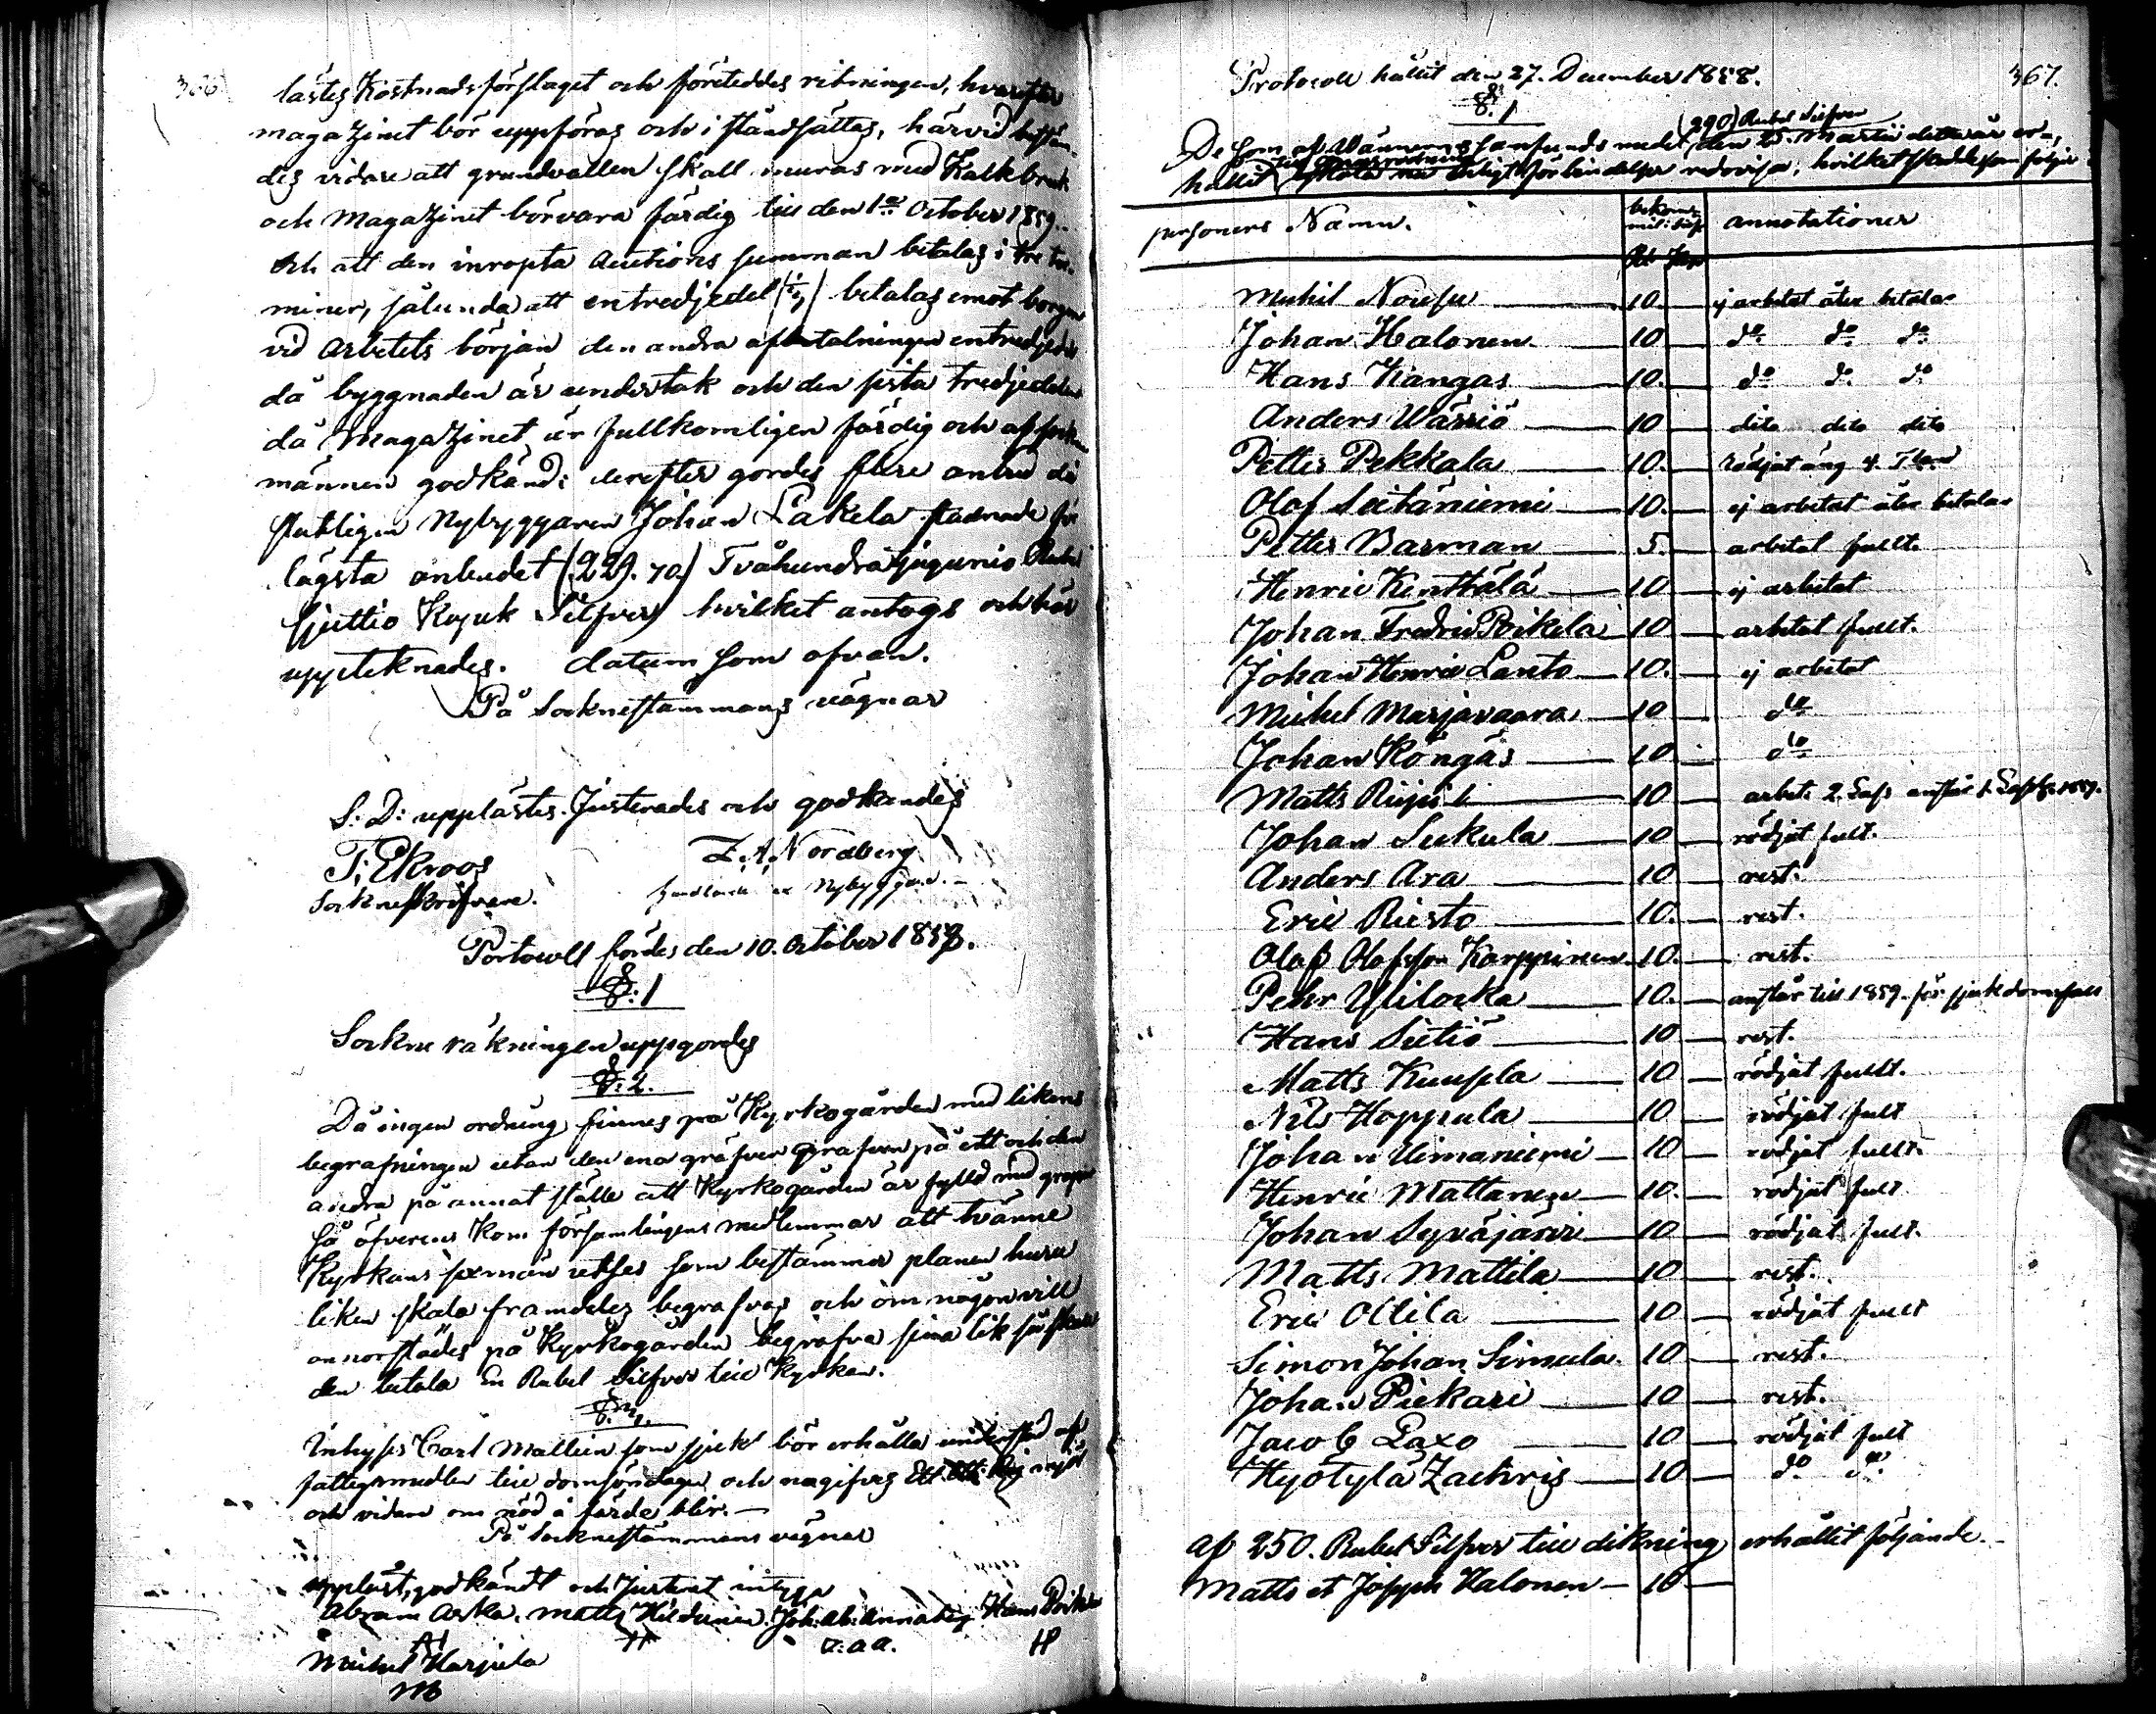 366
lästes Kostnadsförslaget och företeddes ritningen, hvarefter
magazinet bör uppföras och i ståndsättas, härvid bestäm-
des vidare att grundvallen skall muras med Kalkbruk
och Magazinet bör vara färdig till den 1a October 1859.
Och att den inropta auctions summan betalas i tre ter-
miner, sålunda att entredjedel (1/3) betalas emot borgen
vid arbetets början den andra afbetalningen entredjedel
då byggnaden är under tak och den sista tredjedelen
då Magazinet är fullkomligen färdig och af sockne
männen godkänd: derefter gordes flere anbud då
slutligen Nybyggaren Johan Lakela stadnade för
lägsta anbudet (229. 70.) Tvåhundra tjugunio Rubel
sjuttio Kopek Silfver, hvilket antogs och här
uppteknades. datum som ofvan.
På Socknestämmans vägnar
S: D: upplästes. Justerades och godkändes
T: Ekroos Z. A. Nordberg
Socknessrifvare. Nybyggare.
Portocoll fördes den 10. October 1858.
§: 1
Sockne räkningen uppgordes
§: 2.
Då ingen ordning finnes på Kyrkogården med likens
begrafningen utan den ena gräfver grafven på ett och den
andra på annat ställe att Kyrkogården är fylld med gropar
Så öfverens kom församlingens medlemmar att tvänne
Kyrkans sexmän utses som bestämmer planen huru
liken skola framdeles begrafvas och om någon vill
annorstädes på Kyrkogården begrafva sina lik så skall
den betala En Rubel Silfver till Kyrkan.
§. 3.
Inhyses Carl Mallien som sjuk bör erhålla understöd af
fattigmedlen till domsöndagen och nu gifves Ett
och vidare om nöd å färde blir.
På Socknestämmans vägnar
Uppläst, godkändt och Justerat intyga
Abram Arka. Matts Hildunen. Joh: Ab: Annaberg Hans Poik
AA H J: a a. HP
Michel Harjula
MH
367.
Protocoll hållit den 27. December 1858.
§: 1
(290) Rubel Silfver
De som af samfunds medel den 25. Martii detta år er-
hållit enligt förbindelser redovisa, hvilket skedde som följer
personers Namn. bekom- mit: annotationer
Rub Kop
Michel Nousu 10 ej arbetat åter betalar
Johan Halonen 10 do do do
Hans Kangas 10. do do do
Anders Wärriö 10 dito dito dito
Petter Pekkala 10. rödjat äng 4. T. land
Olof Seitäniemi 10. ej arbetat åter betalar
Petter Barman 5. arbetat fullt.
Henric Kenttälä 10 ej arbetat
Johan Fredric Poikela 10 arbetat fullt.
Johan Henric Lanto 10. ej arbetat
Michel Marjavaara 10 do
Johan Köngäs 10 do
Matts Riipi 10 arbet: 2. anstår 1859.
Johan Seikula 10 rödjat fullt.
Anders Ara 10 rest.
Eric Riesto 10. rest.
Olof Olofsson Karppinen 10. rest.
Pehr Yliloska 10. anstår till 1859. för sjukdomsfall
Hans Sietiö 10 rest.
Matts Kuusela 10 rödjat fullt.
Nils Hoppula 10 rödjat fullt
Johan Uimaniemi 10 rödjat fullt.
Henric Mattanen 10. rödjat fullt
Johan Syväjärvi 10 rödjat fullt.
Matts Mattila 10 rest.
Eric Ollila 10 rödjat fullt
Simon Johan Simula. 10 rest.
Johan Piekari 10 rest.
Jacob Laxo 10 rödjat fullt
Hyötylä Zachris 10 do do
af 250. Rubel Silfver till dikning erhållit följande.
Matts et Joseph Halonen 10